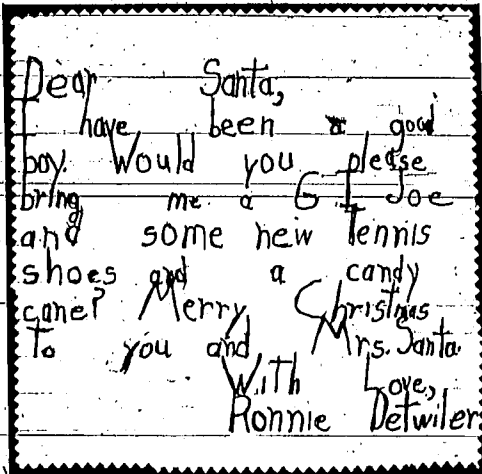 Dear Santa,
I have been a good
boy. Would you please
bring me a G I Joe
and some new Tennis
shoes and a candy
cane? Merry Christmas
To you and Mrs. Santa.
With Love,
Ronnie Detwiler